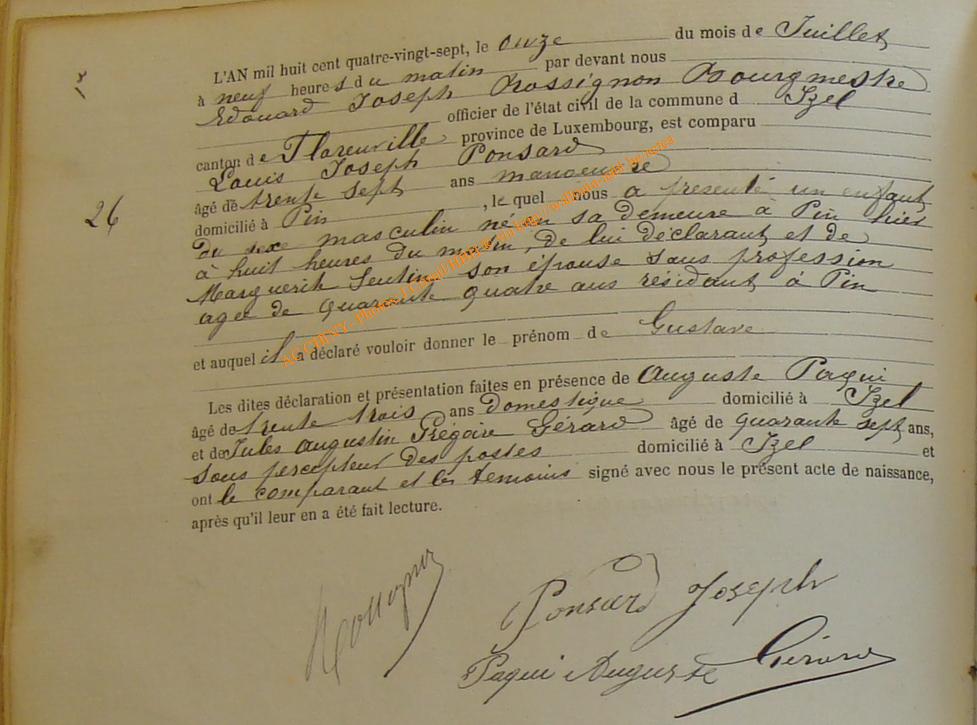 L'AN mil huit cent quatre-vingt-sept, le onze du mois de Juillet
à neuf heures du matin par devant nous
Edouard Joseph Rossignon Bourgmestre
officier de l'état civil de la commune d Izel
canton de Florenville province de Luxembourg, est comparu
Louis Joseph Ponsard
âgé de trente sept ans manoeuvre
26
domicilié à Pin, le quel nous a présenté un enfant
Du sexe masculin né en sa demeure à Pin hier
à huit heures du matin, de lui déclarant et de
Marguerite son épouse sans profession
agée de quarante quatre ans résidant à Pin
et auquel il a déclaré vouloir donner le prénom de Gustave
Les dites déclaration et présentation faites en présence de Auguste Paqui
âgé de trente trois ans Domestique domicilié à Izel
et de Jules Augustin Grégoire Gérard âgé de quarante sept ans,
Sous percepteur des postes domicilié à Izel et
ont le comparant et les témoins signé avec nous le présent acte de naissance,
après qu'il leur en a été fait lecture.
Ponsard Joseph
Paqui Auguste Gérard